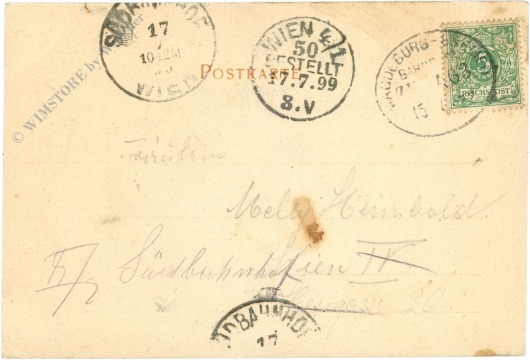 SÜDBAHNHOF
17
7
10-12M
WIEN
© WIMSTORE
POSTKARTE
WIEN 4/1
50
BESTELLT
17.7.99
8.V
MAGDEBURG-
BAHNPOST
15
5
REICHSPOST
Fräulein
Mela Heimbold
Südbahnhof Wien IV
20.
SÜDBAHNHOF
17